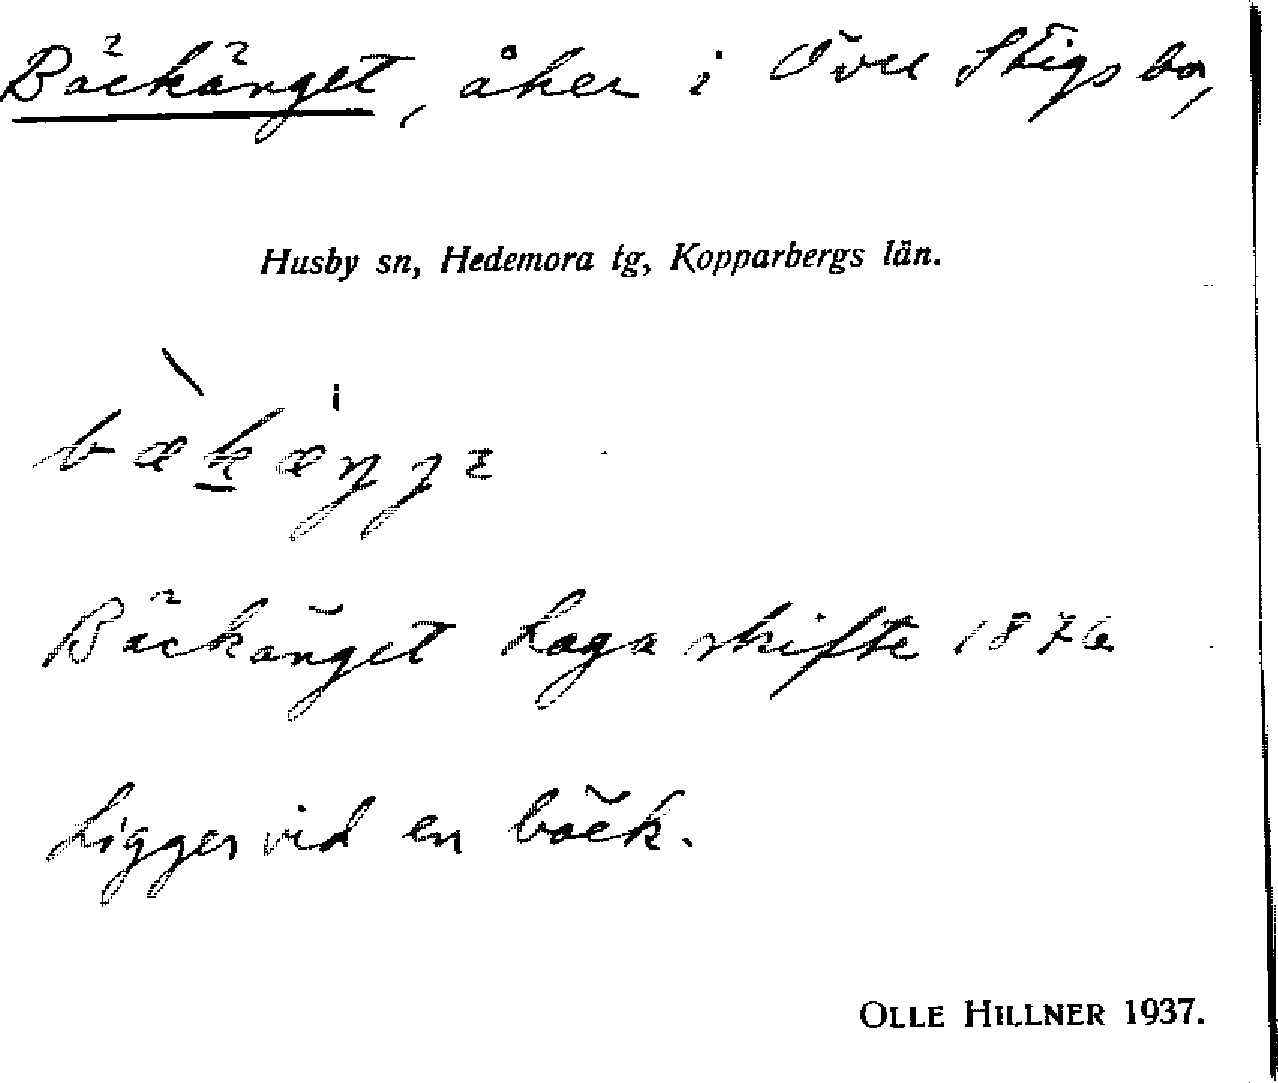 Bäckänget, åker i Övre Stigsbo,
Husby sn, Hedemora tg, Kopparbergs län.
Bäckänget Laga skifte 1876
Ligger vid en bäck.
OLLE HILLNER 1937.